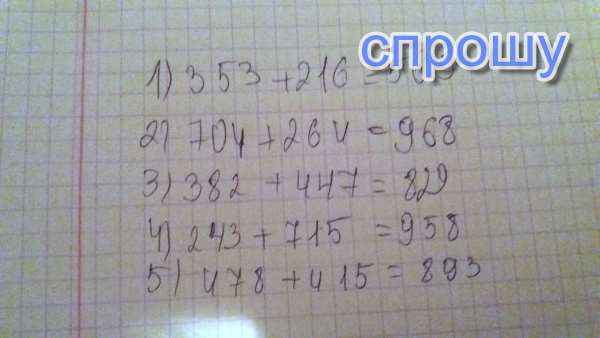 спрошу
1) 353 + 216 =
2) 704 + 264 = 968
3) 382 + 447 = 829
4) 243 + 715 = 958
5) 478 + 415 = 893